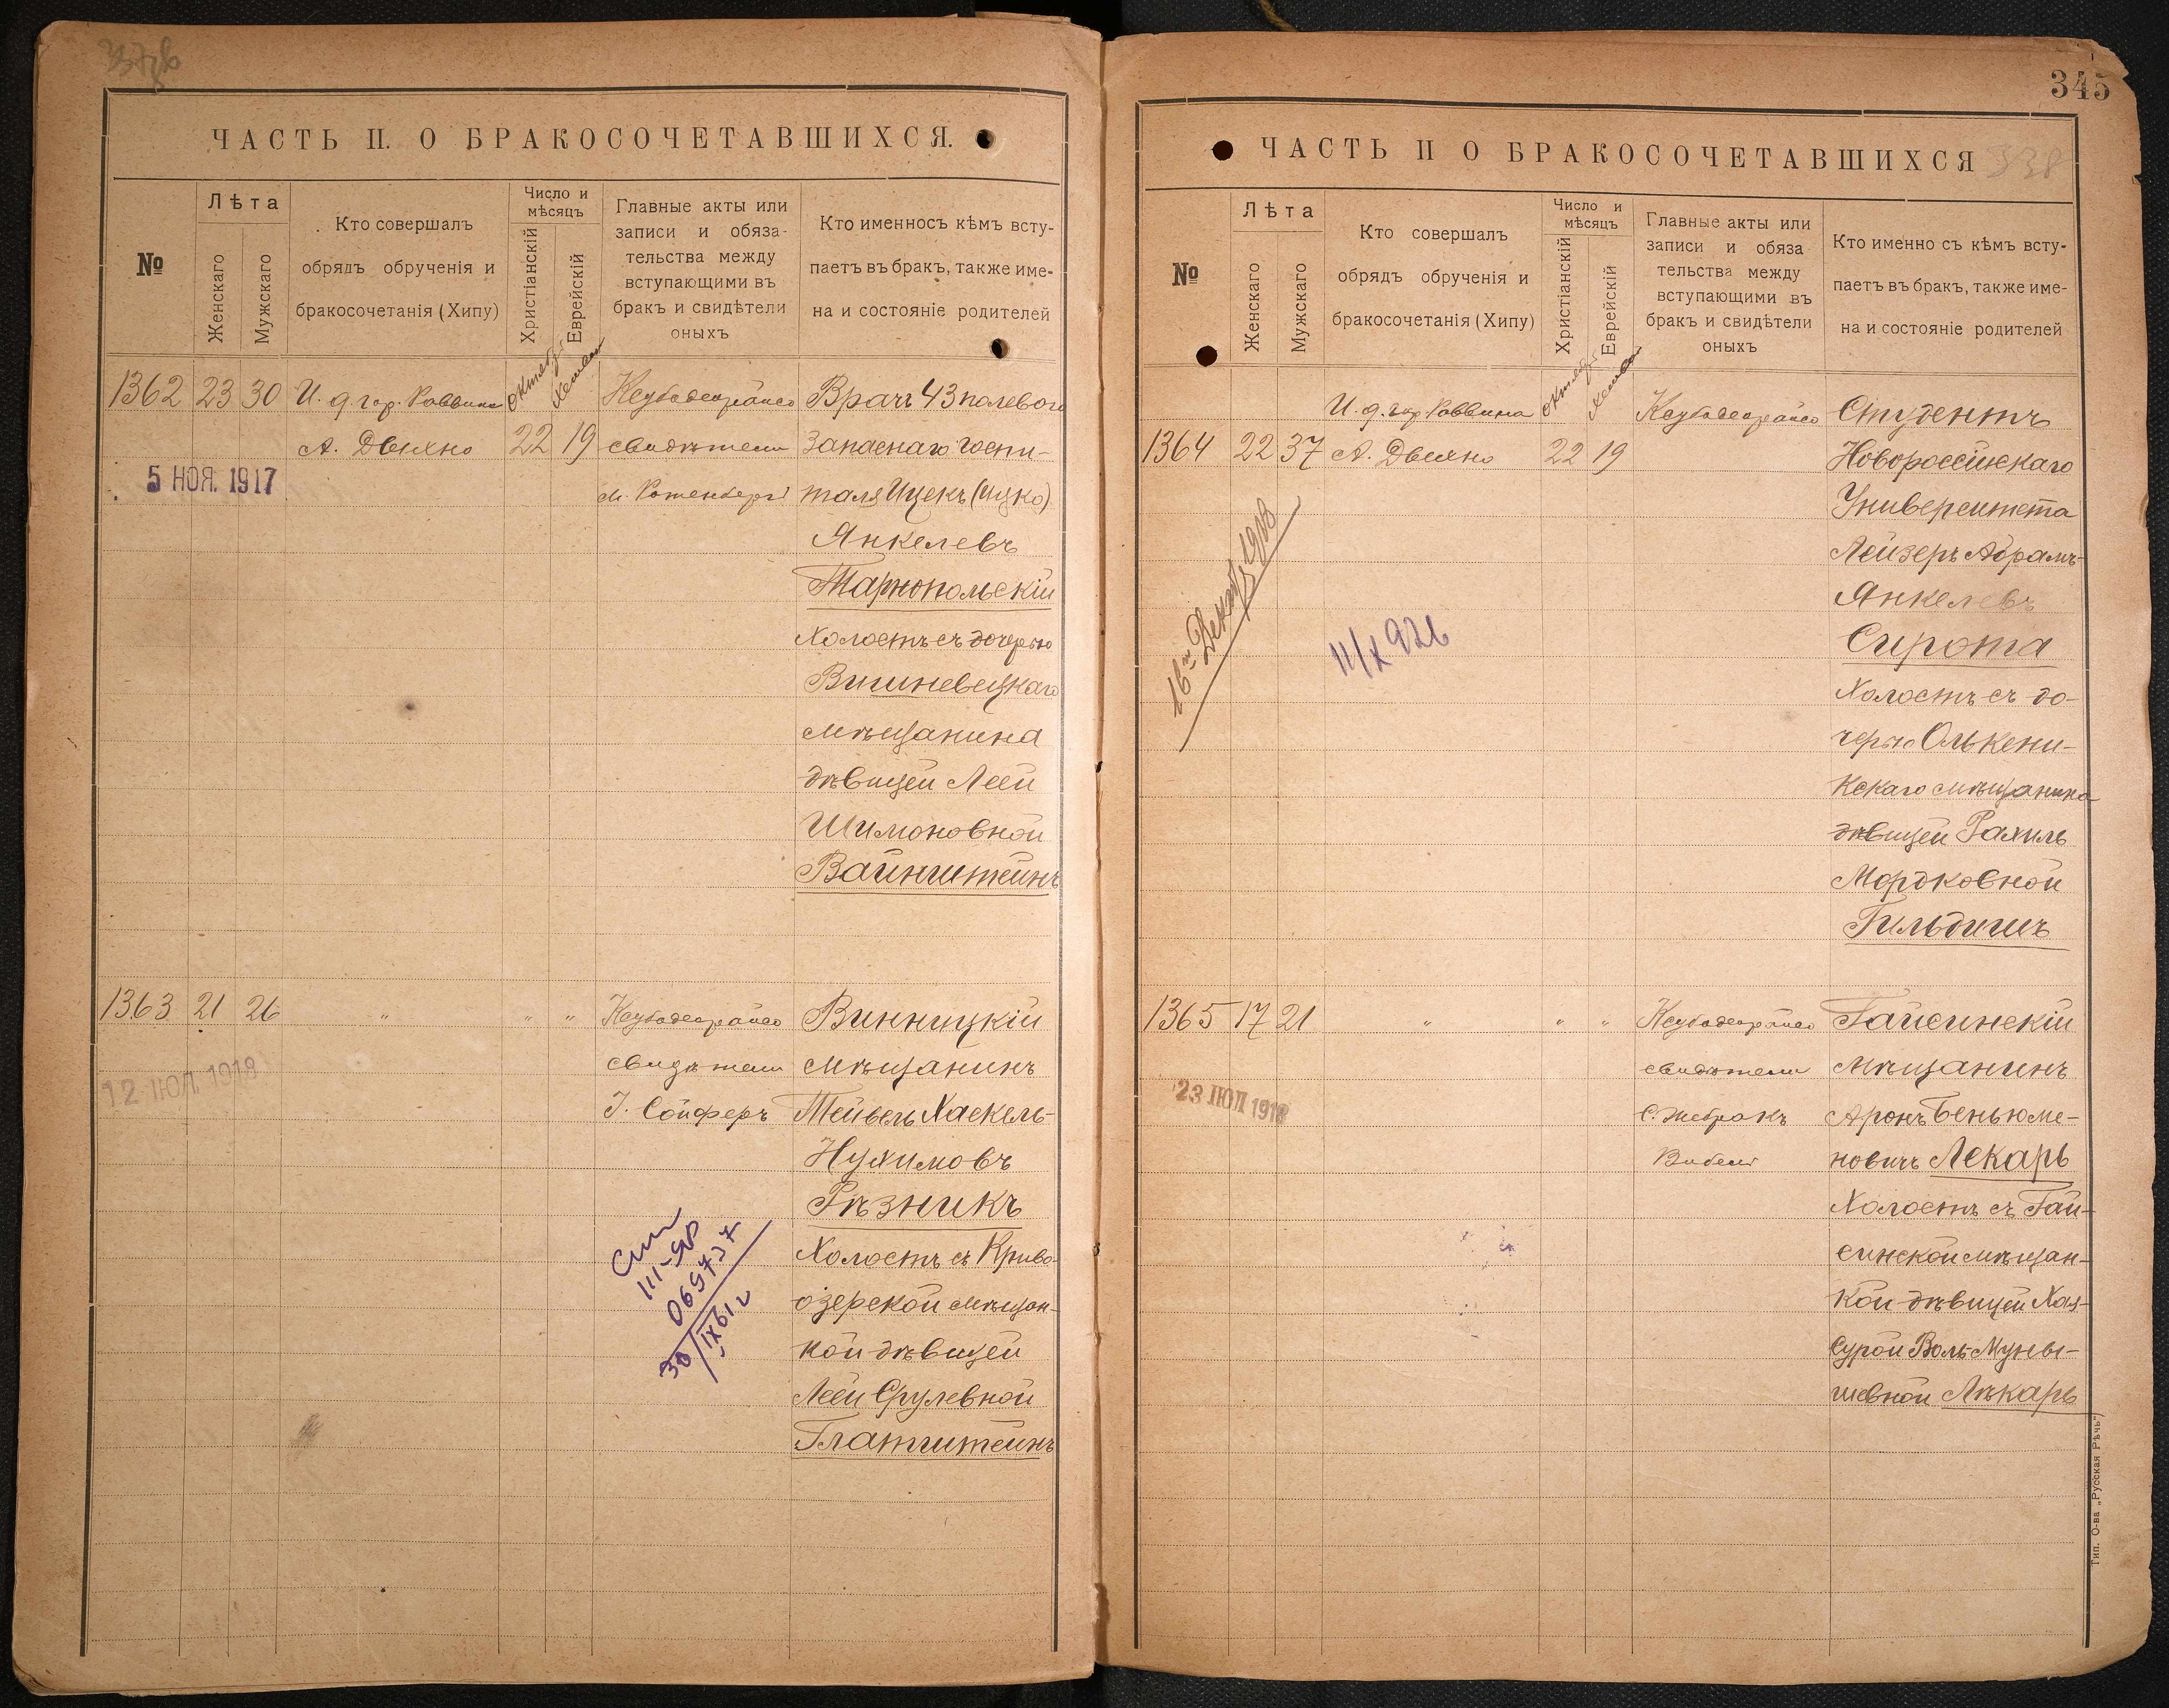 ЧАСТЬ II. О БРАКОСОЧЕТАВШИХСЯ.
№
Лѣта
Женскаго
Мужскаго
Кто совершалъ
обрядъ обрученія и
бракосочетанія (Хипу)
Число и
мѣсяцъ
Христіанскій
Еврейскій
Главные акты или
записи и обяза-
тельства между
вступающими въ
бракъ и свидѣтели
оныхъ
Кто именносъ кѣмъ всту-
паетъ въ бракъ, также име-
на и состояніе родителей
1362 23 30 И. д. гор. Раввина
А. Двихно
5 НОЯ. 1917
22 19
свидѣтели
М. Ротенбергъ
Врачъ 43 полевого
запаснаго госпи-
таля Ицекъ (Ицко)
Янкелевъ
Тарнопольскій
Холостъ съ дочерью
Вишневецкаго
мѣщанина
дѣвицей Леей
Шимоновной
Вайнштейнъ
1363 21 26 " " "
12 ІЮЛ 1918
свидѣтели
І. Сойферъ
Винницкій
мѣщанинъ
Тейвель Хаскель-
Нухимовъ
Рѣзникъ
Холостъ съ Криво-
озерской мѣщан-
кой дѣвицей
Леей Срулевной
Глатштейнъ
069737
345
ЧАСТЬ II О БРАКОСОЧЕТАВШИХСЯ
338
№
Лѣта
Женскаго
Мужскаго
Кто совершалъ
обрядъ обрученія и
бракосочетанія (Хипу)
Число и
мѣсяцъ
Христіанскій
Еврейскій
Главные акты или
записи и обяза
тельства между
вступающими въ
бракъ и свидѣтели
оныхъ
Кто именно съ кѣмъ всту-
паетъ въ бракъ, также име-
на и состояніе родителей
И. д. гор. Раввина
1364 22 37 А. Двихно 22 19
11/X 926
Студентъ
Новороссійскаго
Университета
Лейзеръ Абрамъ-
Янкелевъ
Сирота
Холостъ съ до-
черью Олькени-
кскаго мѣщанина
дѣвицей Рахиль
Мордковной
Гильдишъ
1365 17 21 " " "
23 ІЮЛ 1918
свидѣтели
С. Жебракъ
Гайсинскій
Мѣщанинъ
Аронъ Беньюме-
новичъ Лекарь
Холостъ съ Гай-
синской мѣщан-
кой дѣвицей Хая-
Сурой Воль-Муны-
шевной Лѣкарь
Тип. О-ва „Русская Рѣчь"